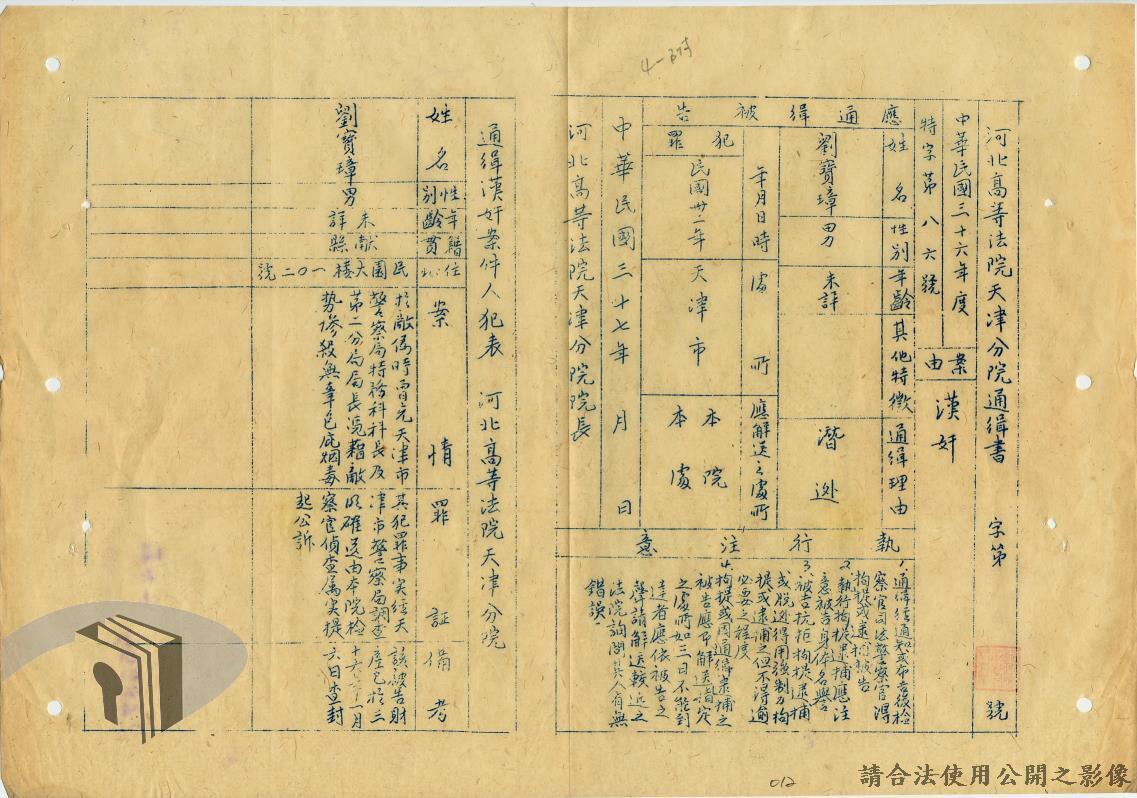 4-附
河北高等法院天津分院通緝書 字第 號
中華民國三十六年度
特字第八六號
案由
漢奸
應通緝被告
姓名
性別
年齡
其他特徵
通緝理由
劉寶璋
男
未詳
潛逃
犯罪
年月日時
處所
應解送之處所
民國卅二年
天津市
本院
本處
中華民國三十七年 月 日
河北高等法院天津分院院長
執行注意
1、通緝經通知或布告後檢
察官司法警察官得
拘提或逮捕被告
2、執行拘提逮捕應注
意被告身体名譽
3、被告抗拒拘提逮捕
或脫逃得用強制力拘
提或逮捕之但不得逾
必要之程度
4、拘提或因通緝逮捕之
被告應即解送指定
之處所如三日不能到
達者應依被告之
聲請解送較近之
法院詢問其人有無
錯誤
通緝漢奸案件人犯表 河北高等法院天津分院
姓名
性別
年齡
籍貫
住址
案情
罪証
備考
劉寶璋
男
未詳
獻縣
民園大樓一〇二號
於敵偽時曾充天津市
警察局特務科科長及
第二分局局長憑藉敵
勢慘殺無辜包庇烟毒
其犯罪事实經天
津市警察局調查
明確送由本院檢
察官偵查属实提
起公訴
該被告財
產已於三
十六年十一月
六日查封
012
請合法使用公開之影像